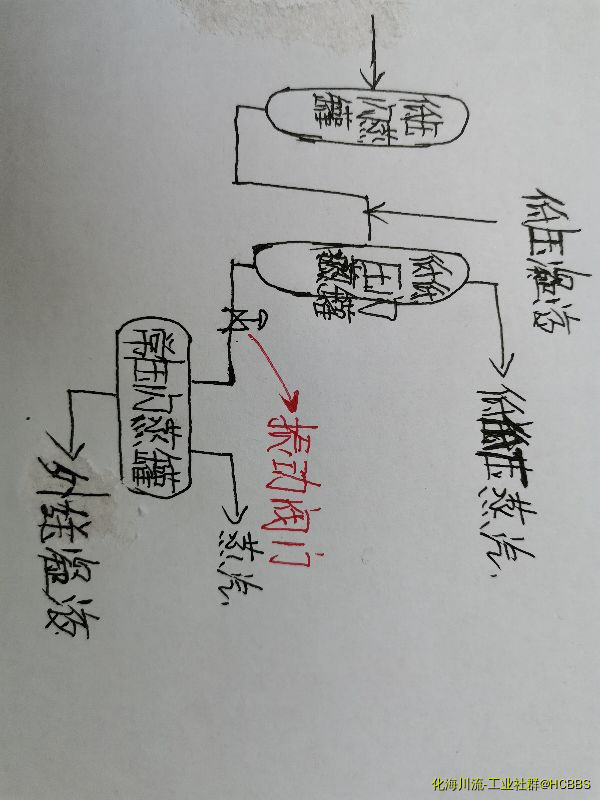 低压
闪蒸
罐
低压凝液
低低
压闪
蒸罐
低低压蒸汽
常压闪蒸罐
振动阀门
蒸汽
外送凝液
化海川流-工业社群@HCBBS